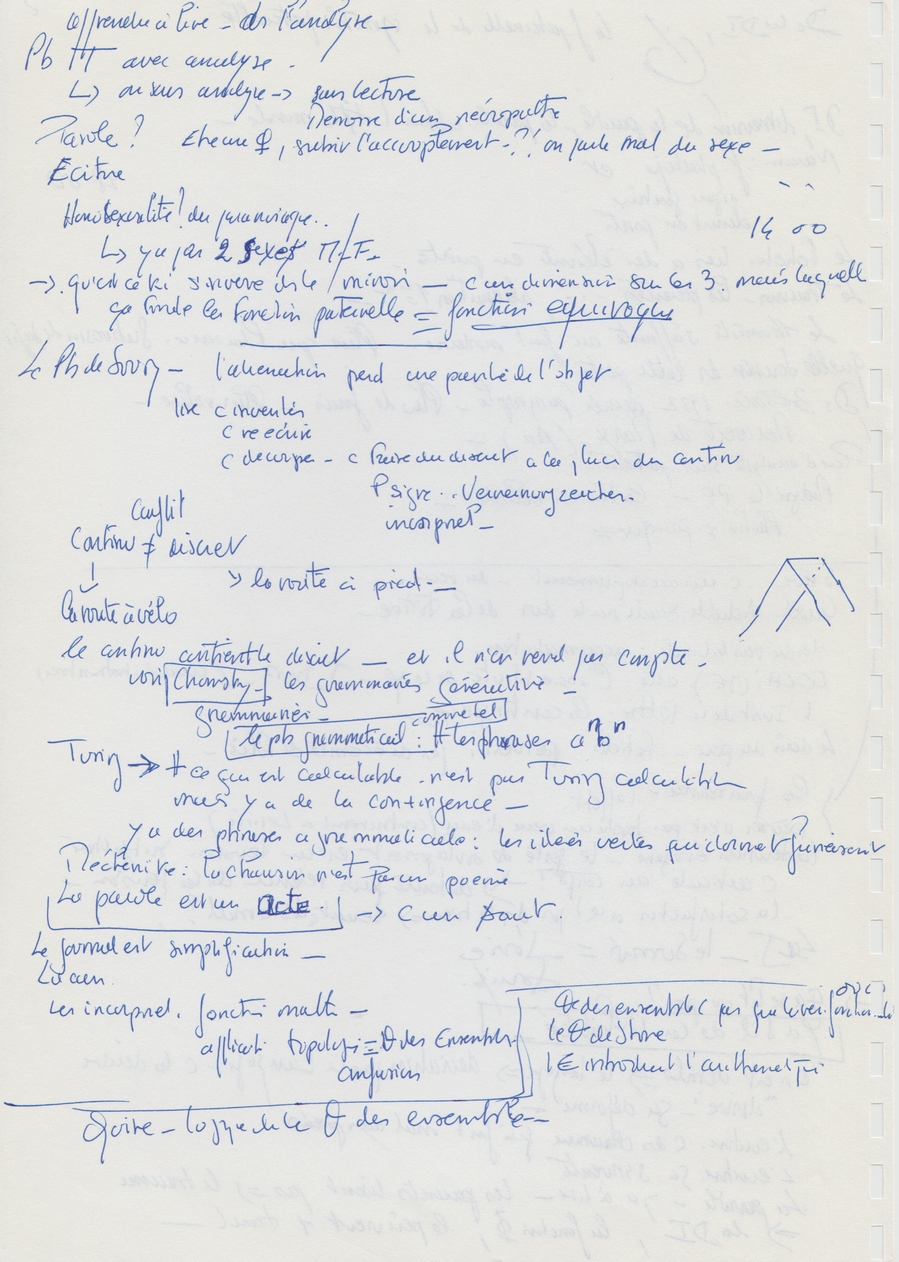 apprendre à lire - ds l'analyse -
Pb avec analyse.
↳ ou sans analyse → sans lecture
Denoise d'un névropathe
Parole? Etre une ♀, subir l'accouplement -?! on parle mal du sexe -
Ecriture
Homosexualité? du paranoiaque..
14 00
↳ y a pas 2 sexes M/F -
→ qu'est ce ki s'inverse ds le miroir — c une dimension sur les 3. mais laquelle
ça fonde les fonction paternelle = fonction équivoque
Le Pb de Soury - l'alienation perd une partie de l'objet
lire c inventer
c reecrire
c decoupe - c faire du discret a la place du continu
signe .. Verneinung zeichen.
incorporel -
Conflit
Continu ≠ discret
↓ > la route à pied -
la route à vélo
le continu contient le discret — et il n'en rend pas compte -
voir Chomsky - les grammaires génératives -
grammaires -
le pb grammatical : # les phrases aⁿbⁿ
Turing → # ce qui est calculable n'est pas Turing calculable
mais y a de la contingence -
y a des phrases agrammaticales : les idées vertes qui dorment furieusement
la chanson n'est pas un poème
La parole est un acte. → c un saut.
Le journal est simplification —
Les incorporel. fonction math -
applicati topologie = θ des Ensembles
confusion
θ des ensembles c pas que les fonction
le θ de Stone
l E introduit l'
- logique de le θ des ensembles -